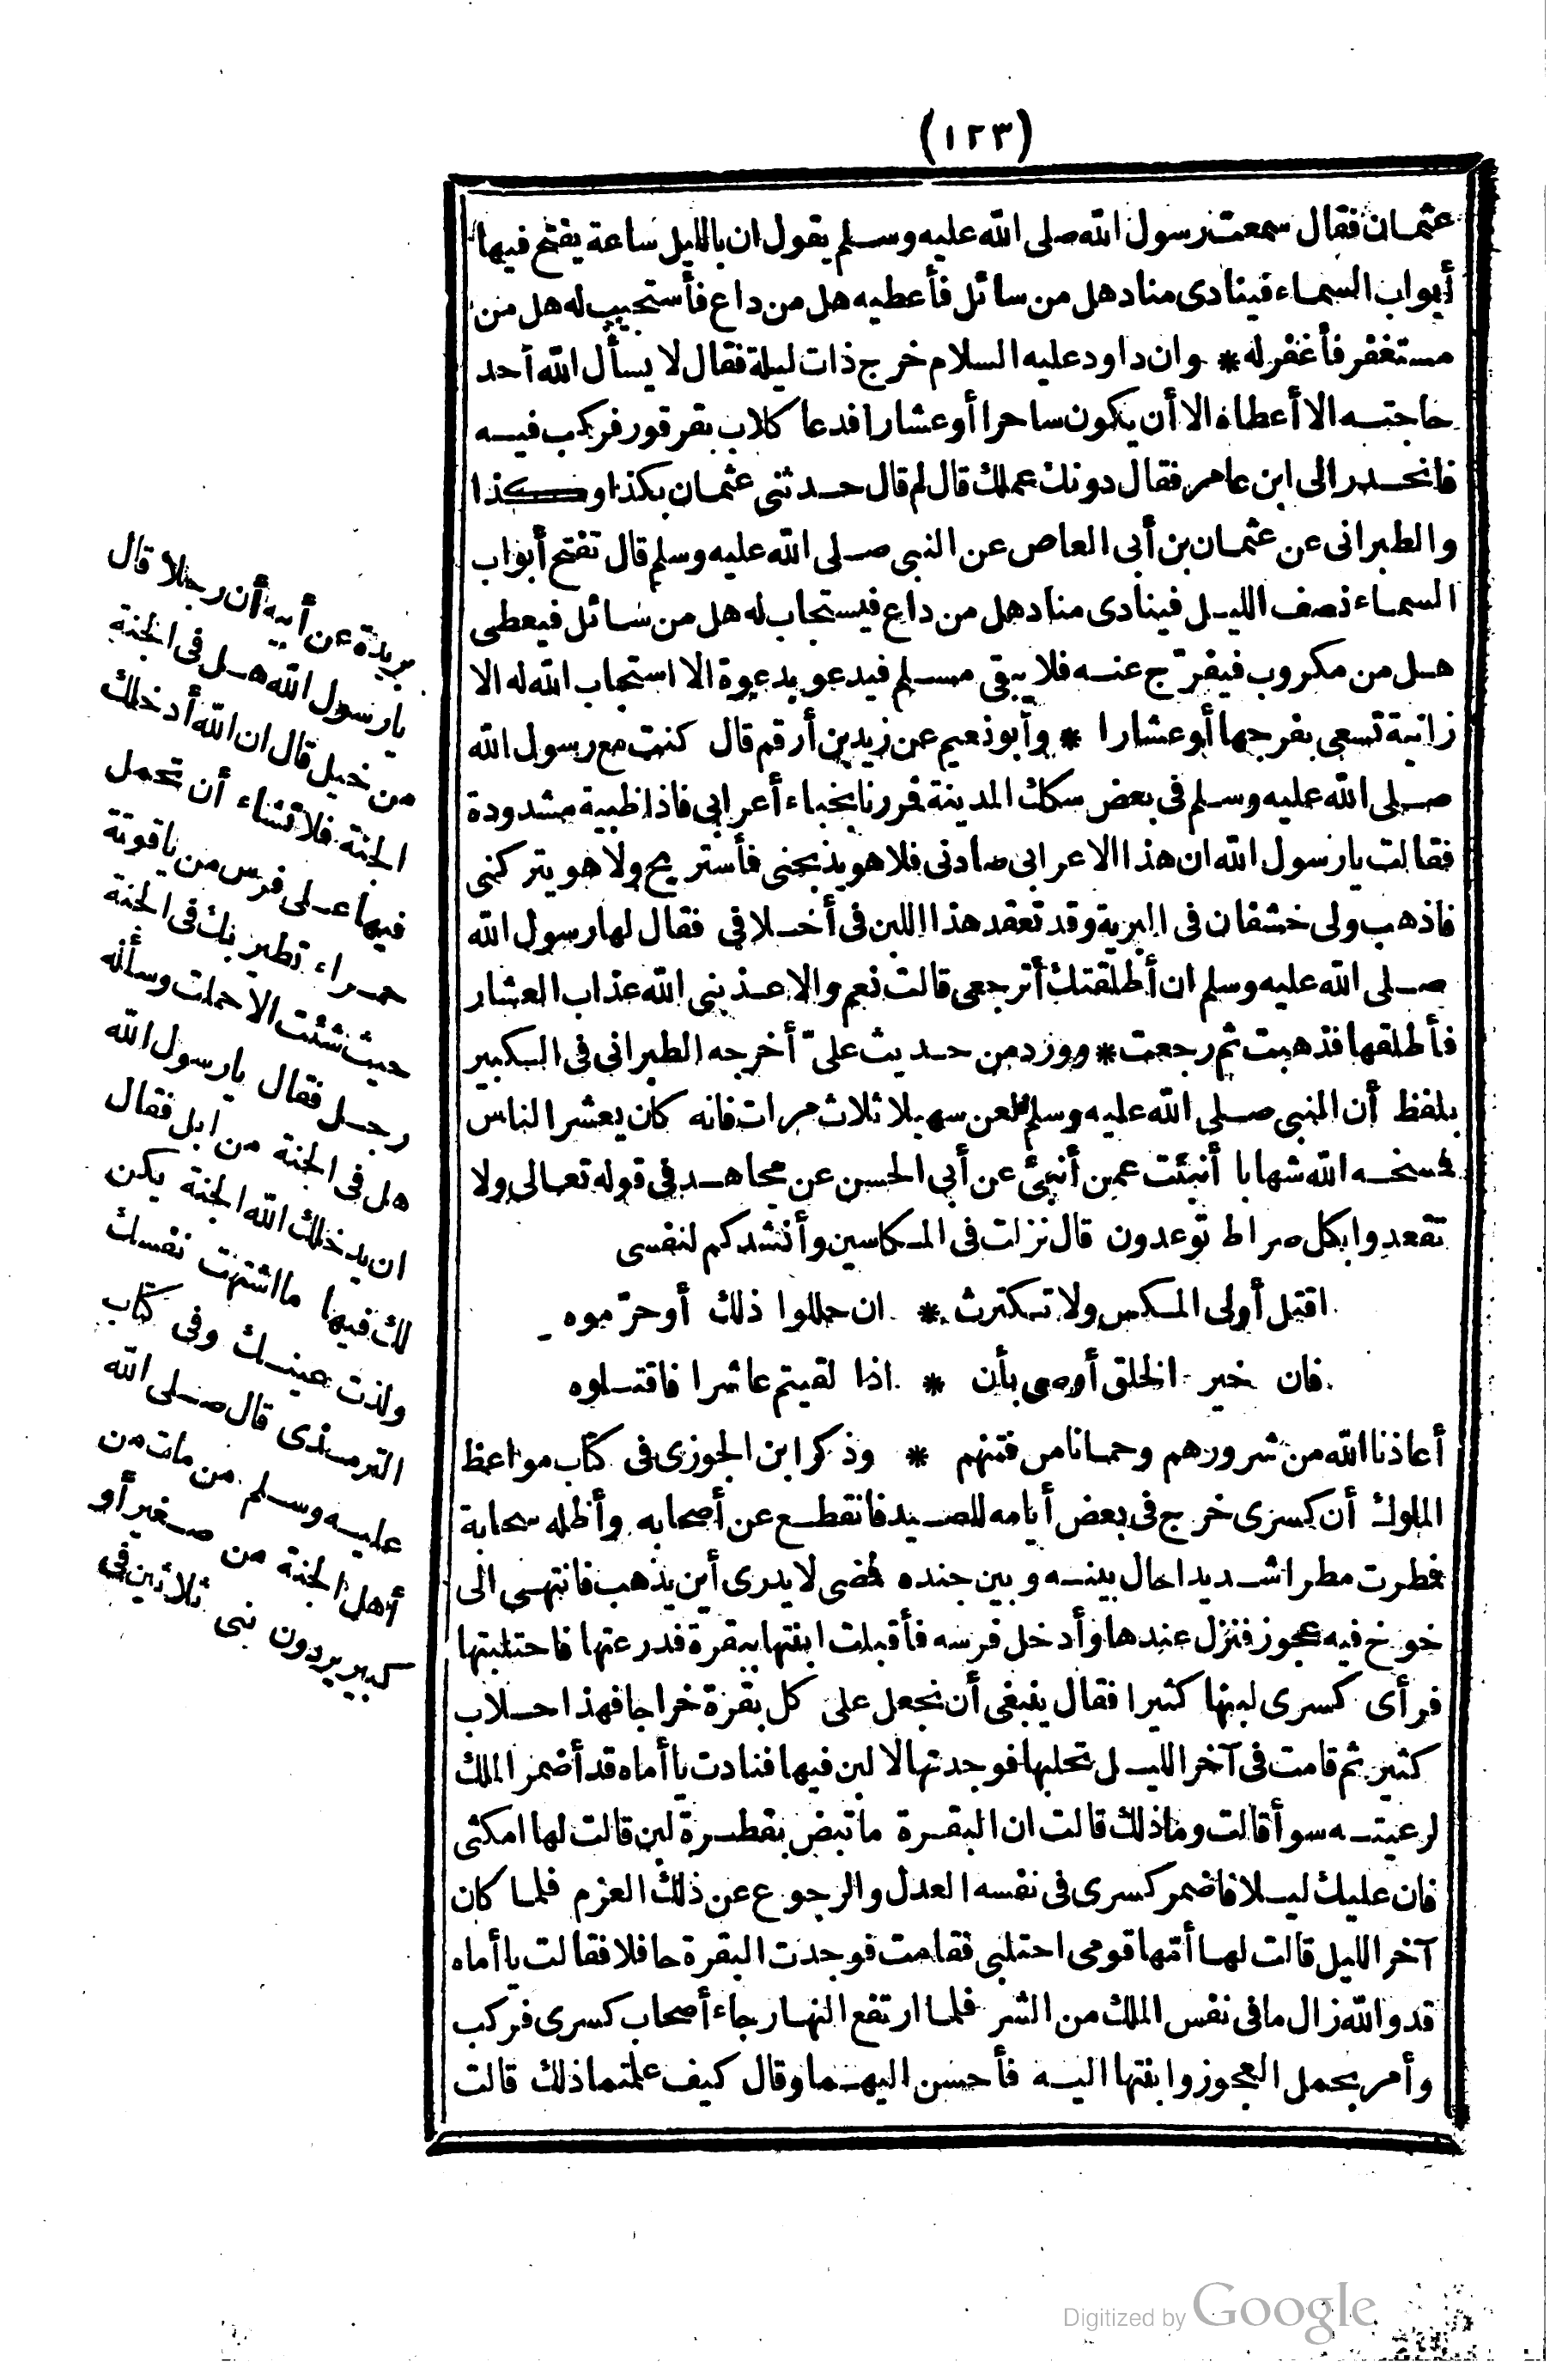 (١٢٣)
عثمان فقال سمعت رسول الله صلى الله عليه وسلم يقول ان بالليل ساعة يفتح فيها
أبواب السماء فينادى مناد هل من سائل فأعطيه هل من داع فأستجيب له هل من
مستغفر فأغفر له * وان داود عليه السلام خرج ذات ليلة فقال لا يسأل الله أحد
حاجته الا أعطاه الا أن يكون ساحرا أو عشارا فدعا كلاب بقرقور فركب فيه
فانحدر الى ابن عامر فقال دونك عملك قال لم قال حدثنى عثمان بكذا وكذا
والطبرانى عن عثمان بن أبى العاص عن النبى صلى الله عليه وسلم قال تفتح أبواب
السماء نصف الليل فينادى مناد هل من داع فيستجاب له هل من سائل فيعطى
هل من مكروب فيفرّج عنه فلا يبقى مسلم فيدعو بدعوة الا استجاب الله له الا
زانية تسعى بفرجها أو عشارا * وأبو نعيم عن زيد بن أرقم قال كنت مع رسول الله
صلى الله عليه وسلم فى بعض سكك المدينة فمررنا بخباء أعرابى فاذا ظبية مشدودة
فقالت يا رسول الله ان هذا الاعرابى صادنى فلا هو يذبحنى فأستريح ولا هو يتركنى
فاذهب ولى خشفان فى البرية وقد تعقد هذا اللبن فى أخلافى فقال لها رسول الله
صلى الله عليه وسلم ان أطلقتك أترجعى قالت نعم والا عذبنى الله عذاب العشار
فأطلقها فذهبت ثم رجعت * وورد من حديث علىّ أخرجه الطبرانى فى الكبير
بلفظ أن النبى صلى الله عليه وسلم لعن سهيلا ثلاث مرات فانه كان يعشر الناس
فمسخه الله شهابا أنبئت عمن أنبئ عن أبى الحسن عن مجاهد فى قوله تعالى ولا
تقعدوا بكل صراط توعدون قال نزلت فى المكاسين وأنشدكم لنفسى
اقتل أولى المكس ولا تكترث * ان حللوا ذلك أو حرّموه
فان خير الخلق أوصى بأن * اذا لقيتم عاشرا فاقتلوه
أعاذنا الله من شرورهم وحمانا من فتنهم * وذكر ابن الجوزى فى كتاب مواعظ
الملوك أن كسرى خرج فى بعض أيامه للصيد فانقطع عن أصحابه وأظله سحابة
فطرت مطرا شديدا حال بينه وبين جنده فمضى لا يدرى أين يذهب فانتهى الى
خوخ فيه عجوز فنزل عندها وأدخل فرسه فأقبلت ابنتها ببقرة فدرعتها فاحتلبتها
فرأى كسرى لبنها كثيرا فقال ينبغى أن نجعل على كل بقرة خراجا فهذا حلاب
كثير ثم قامت فى آخر الليل تحلبها فوجدتها لا لبن فيها فنادت يا أماه قد أضمر الملك
لرعيته سوأ قالت وما ذلك قالت ان البقرة ما تبض بقطرة لبن قالت لها امكثى
فان عليك ليلا فاضمر كسرى فى نفسه العدل والرجوع عن ذلك العزم فلما كان
آخر الليل قالت لها أمّها قومى احتلبى فقامت فوجدت البقرة حافلا فقالت يا أماه
قد والله زال ما فى نفس الملك من الشر فلما ارتفع النهار جاء أصحاب كسرى فركب
وأمر بحمل العجوز وابنتها اليه فأحسن اليهما وقال كيف علمتما ذلك قالت
بريدة عن أبيه أن رجلا قال
يا رسول الله هل فى الجنة
من خيل قال ان الله أدخلك
الجنة فلا تشاء أن تحمل
فيها على فرس من ياقوتة
حمراء تطير بك فى الجنة
حيث شئت الا حملت وسأله
رجل فقال يا رسول الله
هل فى الجنة من ابل فقال
ان يدخلك الله الجنة يكن
لك فيها ما اشتهت نفسك
ولذت عينك وفى كتاب
الترمذى قال صلى الله
عليه وسلم من مات من
أهل الجنة من صغير أو
كبير يردون بنى ثلاثين فى
Digitized by Google